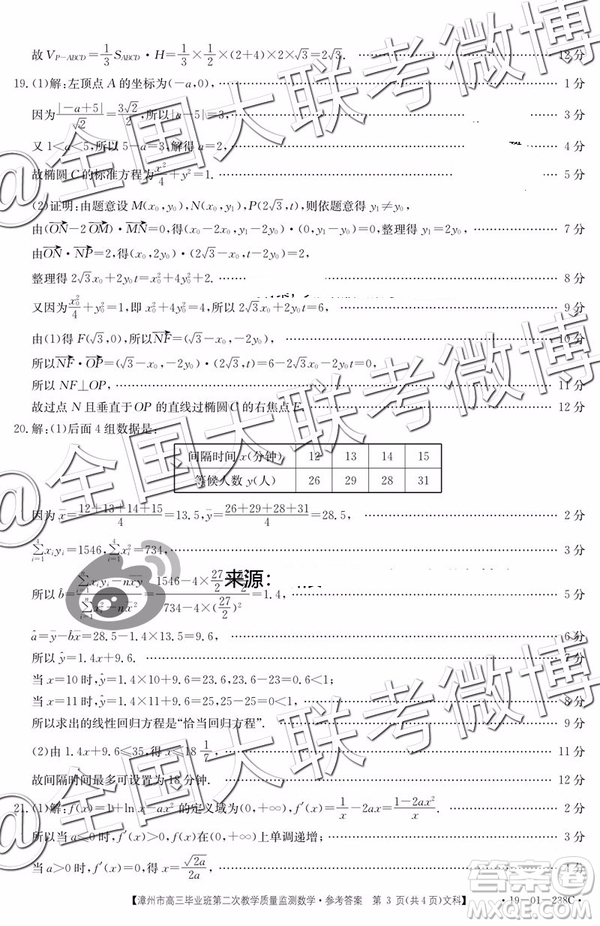 故 V_{P-ABCD}=1/3 S_{ABCD}·H=1/3×1/2×(2+4)×2×2√3=2√3. 12 分
19.(1)解:左顶点 A 的坐标为(-a,0), 1 分
因为|-a+5|/√2=3√2/2,所以|a-5|=3, 3 分
又 1<a<5,所以 5-a=3,解得 a=2,
故椭圆 C 的标准方程为 x²/4+y²=1. 5 分
(2)证明:由题意设 M(x₀,y₀),N(x₀,y₁),P(2√3,t),则依题意得 y₁≠y₀,
由(ON-2OM)·MN=0,得(x₀-2x₀,y₁-2y₀)·(0,y₁-y₀)=0,整理得 y₁=2y₀, 7 分
由ON·NP=2,得(x₀,2y₀)·(2√3-x₀,t-2y₀)=2,
整理得 2√3x₀+2y₀t=x₀²+4y₀²+2. 8 分
又因为 x₀²/4+y₀²=1,即 x₀²+4y₀²=4,所以 2√3x₀+2y₀t=6, 9 分
由(1)得 F(√3,0),则NF=(√3-x₀,-2y₀), 10 分
所以NF·OP=(√3-x₀,-2y₀)·(2√3,t)=6-2√3x₀-2y₀t=0,
所以 NF⊥OP, 11 分
故过点 N 且垂直于 OP 的直线过椭圆 C 的右焦点 F. 12 分
20.解:(1)后面 4 组数据是:
间隔时间 x(分钟) 12 13 14 15
等候人数 y(人) 26 29 28 31
因为 x̄=(12+13+14+15)/4=13.5,ȳ=(26+29+28+31)/4=28.5, 2 分
∑xᵢyᵢ=1546,∑xᵢ²=734, 3 分
所以 b̂=(∑xᵢyᵢ-nx̄ȳ)/(∑xᵢ²-nx̄²)=(1546-4×27/2×57/2)/(734-4×(27/2)²)=1.4, 5 分
来源:
â=ȳ-b̂x̄=28.5-1.4×13.5=9.6, 6 分
所以 ŷ=1.4x+9.6. 7 分
当 x=10 时,ŷ=1.4×10+9.6=23.6,23.6-23=0.6<1;
当 x=11 时,ŷ=1.4×11+9.6=25,25-25=0<1, 8 分
所以求出的线性回归方程是“恰当回归方程”. 9 分
(2)由 1.4x+9.6≤35,得 x≤18 1/7, 11 分
故间隔时间最多可设置为 18 分钟. 12 分
21.(1)解:f(x)=1+ln x-ax² 的定义域为(0,+∞),f′(x)=1/x-2ax=(1-2ax²)/x. 2 分
所以当 a≤0 时,f′(x)>0,f(x)在(0,+∞)上单调递增; 3 分
当 a>0 时,f′(x)=0,得 x=√(2a)/2a, 4 分
【漳州市高三毕业班第二次教学质量监测数学·参考答案 第 3 页(共 4 页)文科】 ·19-01-238C·
@全国大联考微博
@全国大联考微博
@全国大联考微博